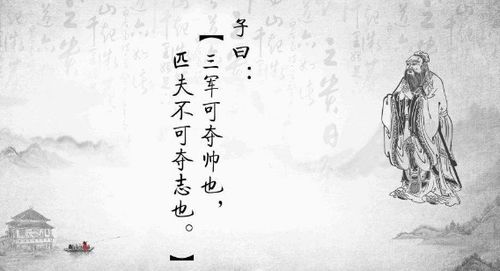 子曰：
【三军可夺帅也，
匹夫不可夺志也。】